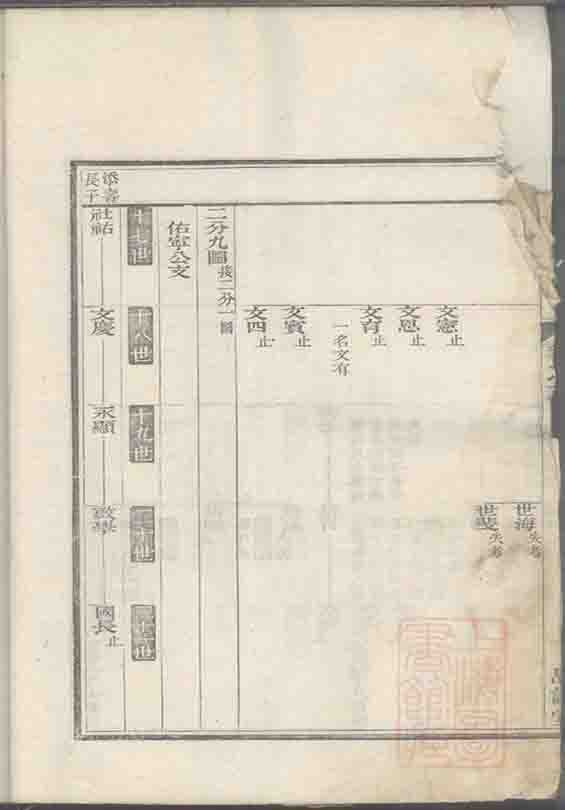 世海失考
世斐失考
文憲止
文恩止
文育止
一名文有
文賓止
文四止
二分九圖接二分一圖
佑寧公支
十七世
十八世
十九世
二十世
二十一世
添壽長子
社祐
文慶
永顯
啟學
國長止